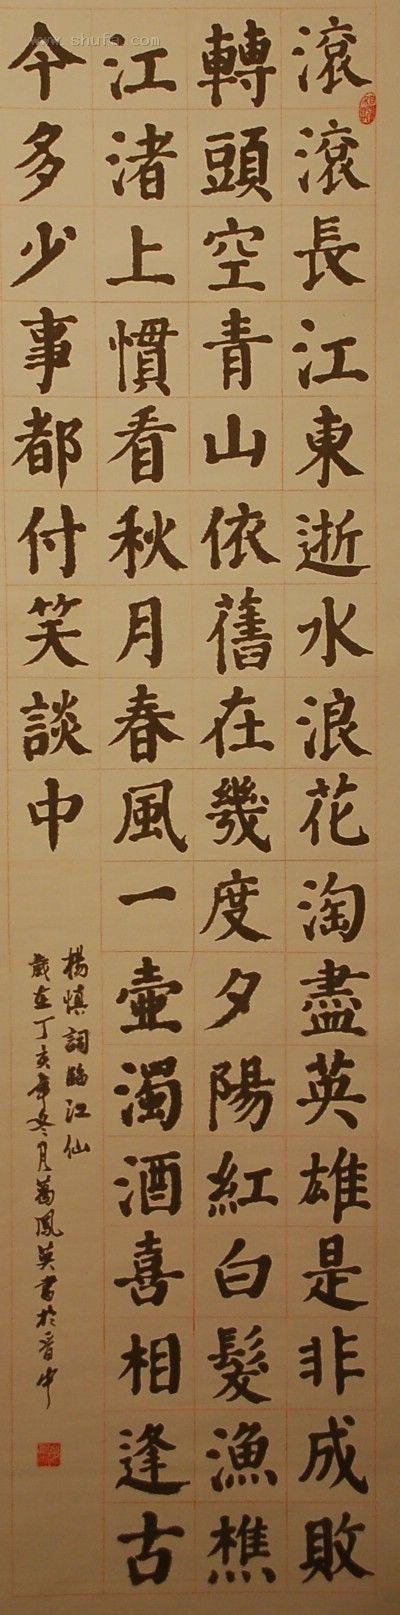 www.shufa.com
滾滾長江東逝水浪花淘盡英雄是非成敗
轉頭空青山依舊在幾度夕陽紅白髮漁樵
江渚上慣看秋月春風一壺濁酒喜相逢古
今多少事都付笑談中
楊慎詞臨江仙
歲在丁亥年冬月葛鳳英書於晉中